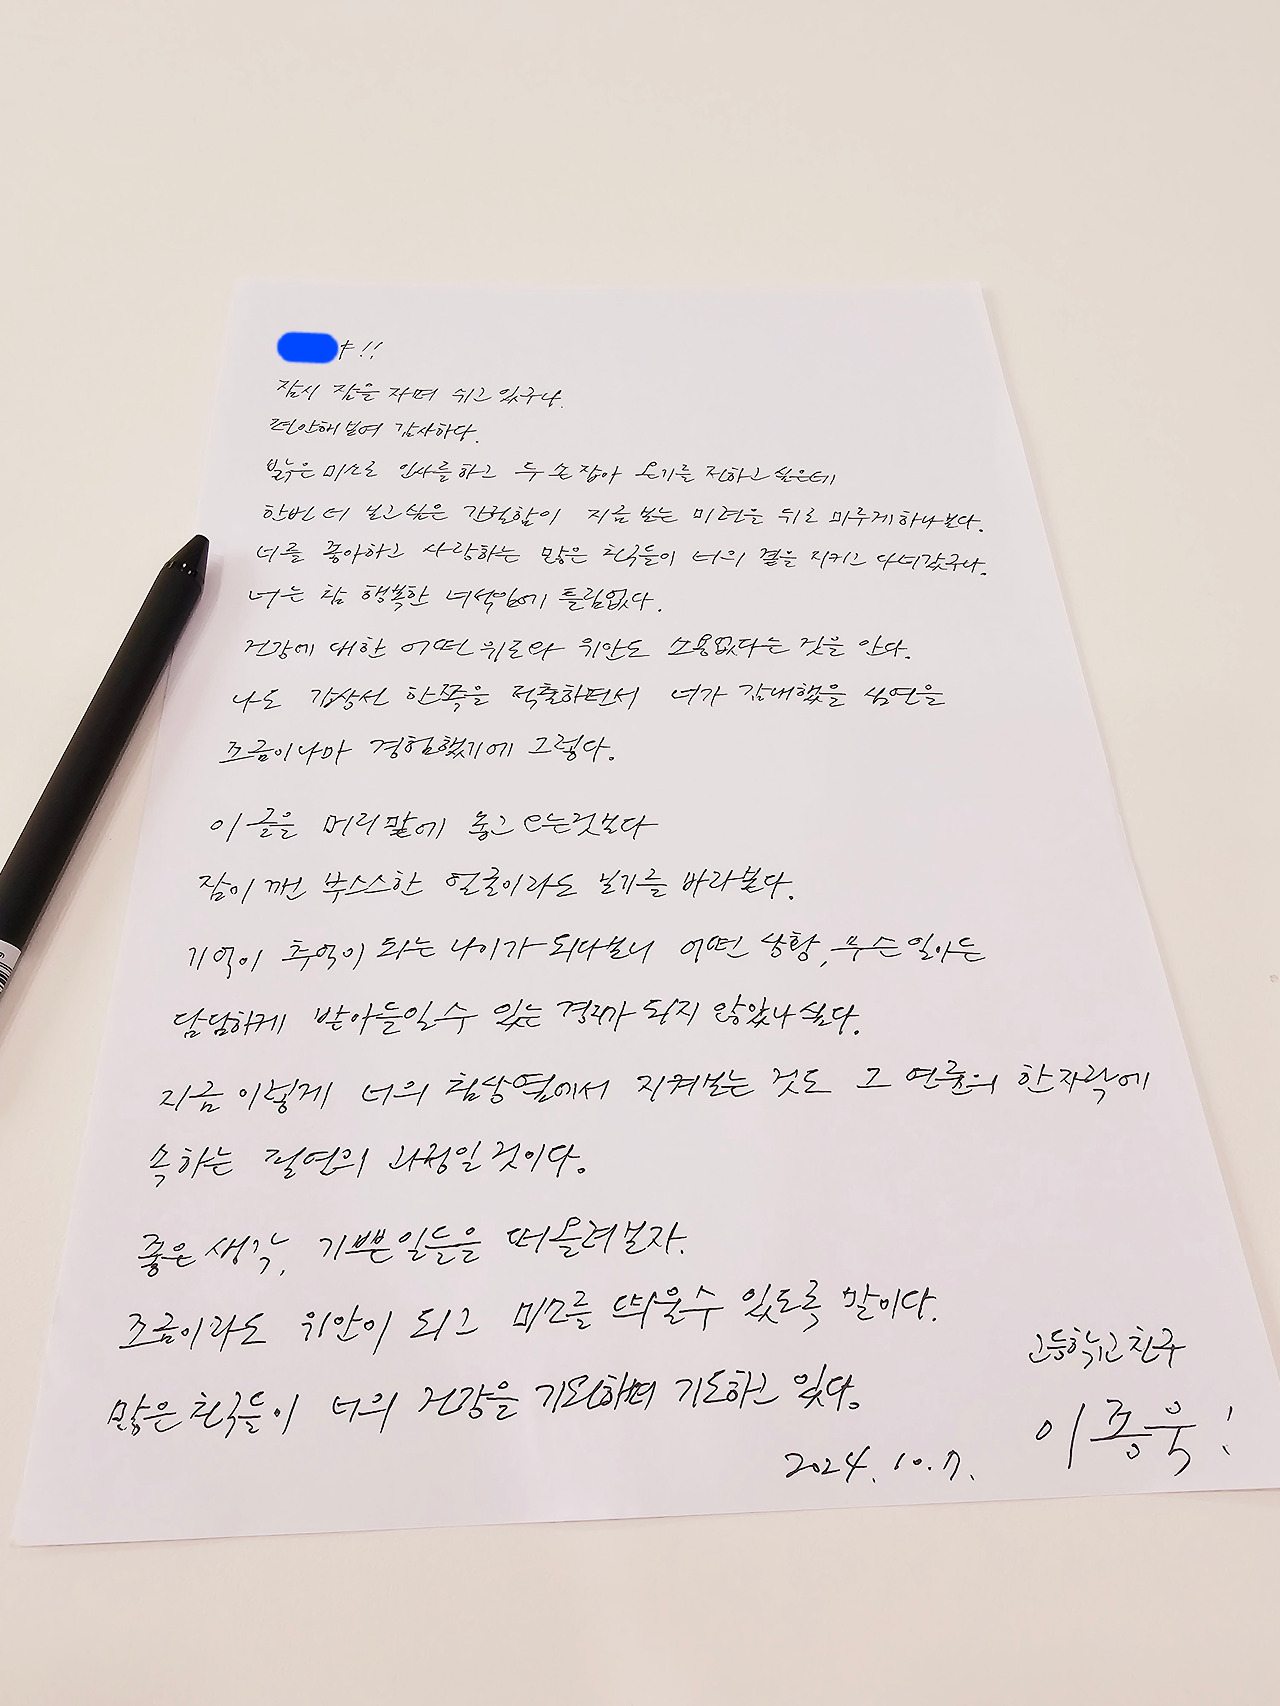 야!!
잠시 잠을 자며 쉬고 있구나.
편안해보여 감사하다.
밝은 미소로 인사를 하고 두 손 잡아 온기를 전하고 싶은데
한번 더 보고싶은 간절함이 지금 보는 미련을 뒤로 미루게하나보다.
너를 좋아하고 사랑하는 많은 친구들이 너의 곁을 지키고 다녀갔구나.
너는 참 행복한 녀석임에 틀림없다.
건강에 대한 어떤 위로와 위안도 소용없다는 것을 안다.
나도 갑상선 한쪽을 적출하면서 너가 감내했을 심연을
조금이나마 경험했기에 그렇다.
이 글을 머리맡에 놓고 오는것보다
잠이 깬 부스스한 얼굴이라도 보기를 바라본다.
기억이 추억이 되는 나이가 되다보니 어떤 상황, 무슨일이든
담담하게 받아들일수 있는 경지가 되지 않았나싶다.
지금 이렇게 너의 침상옆에서 지켜보는 것도 그 연륜의 한자락에
속하는 필연의 과정일것이다.
좋은생각, 기쁜일들을 떠올려보자.
조금이라도 위안이 되고 미소를 띄울수 있도록 말이다.
많은친구들이 너의 건강을 기원하며 기도하고 있다.
2024. 10. 7.
고등학교친구
이종욱!